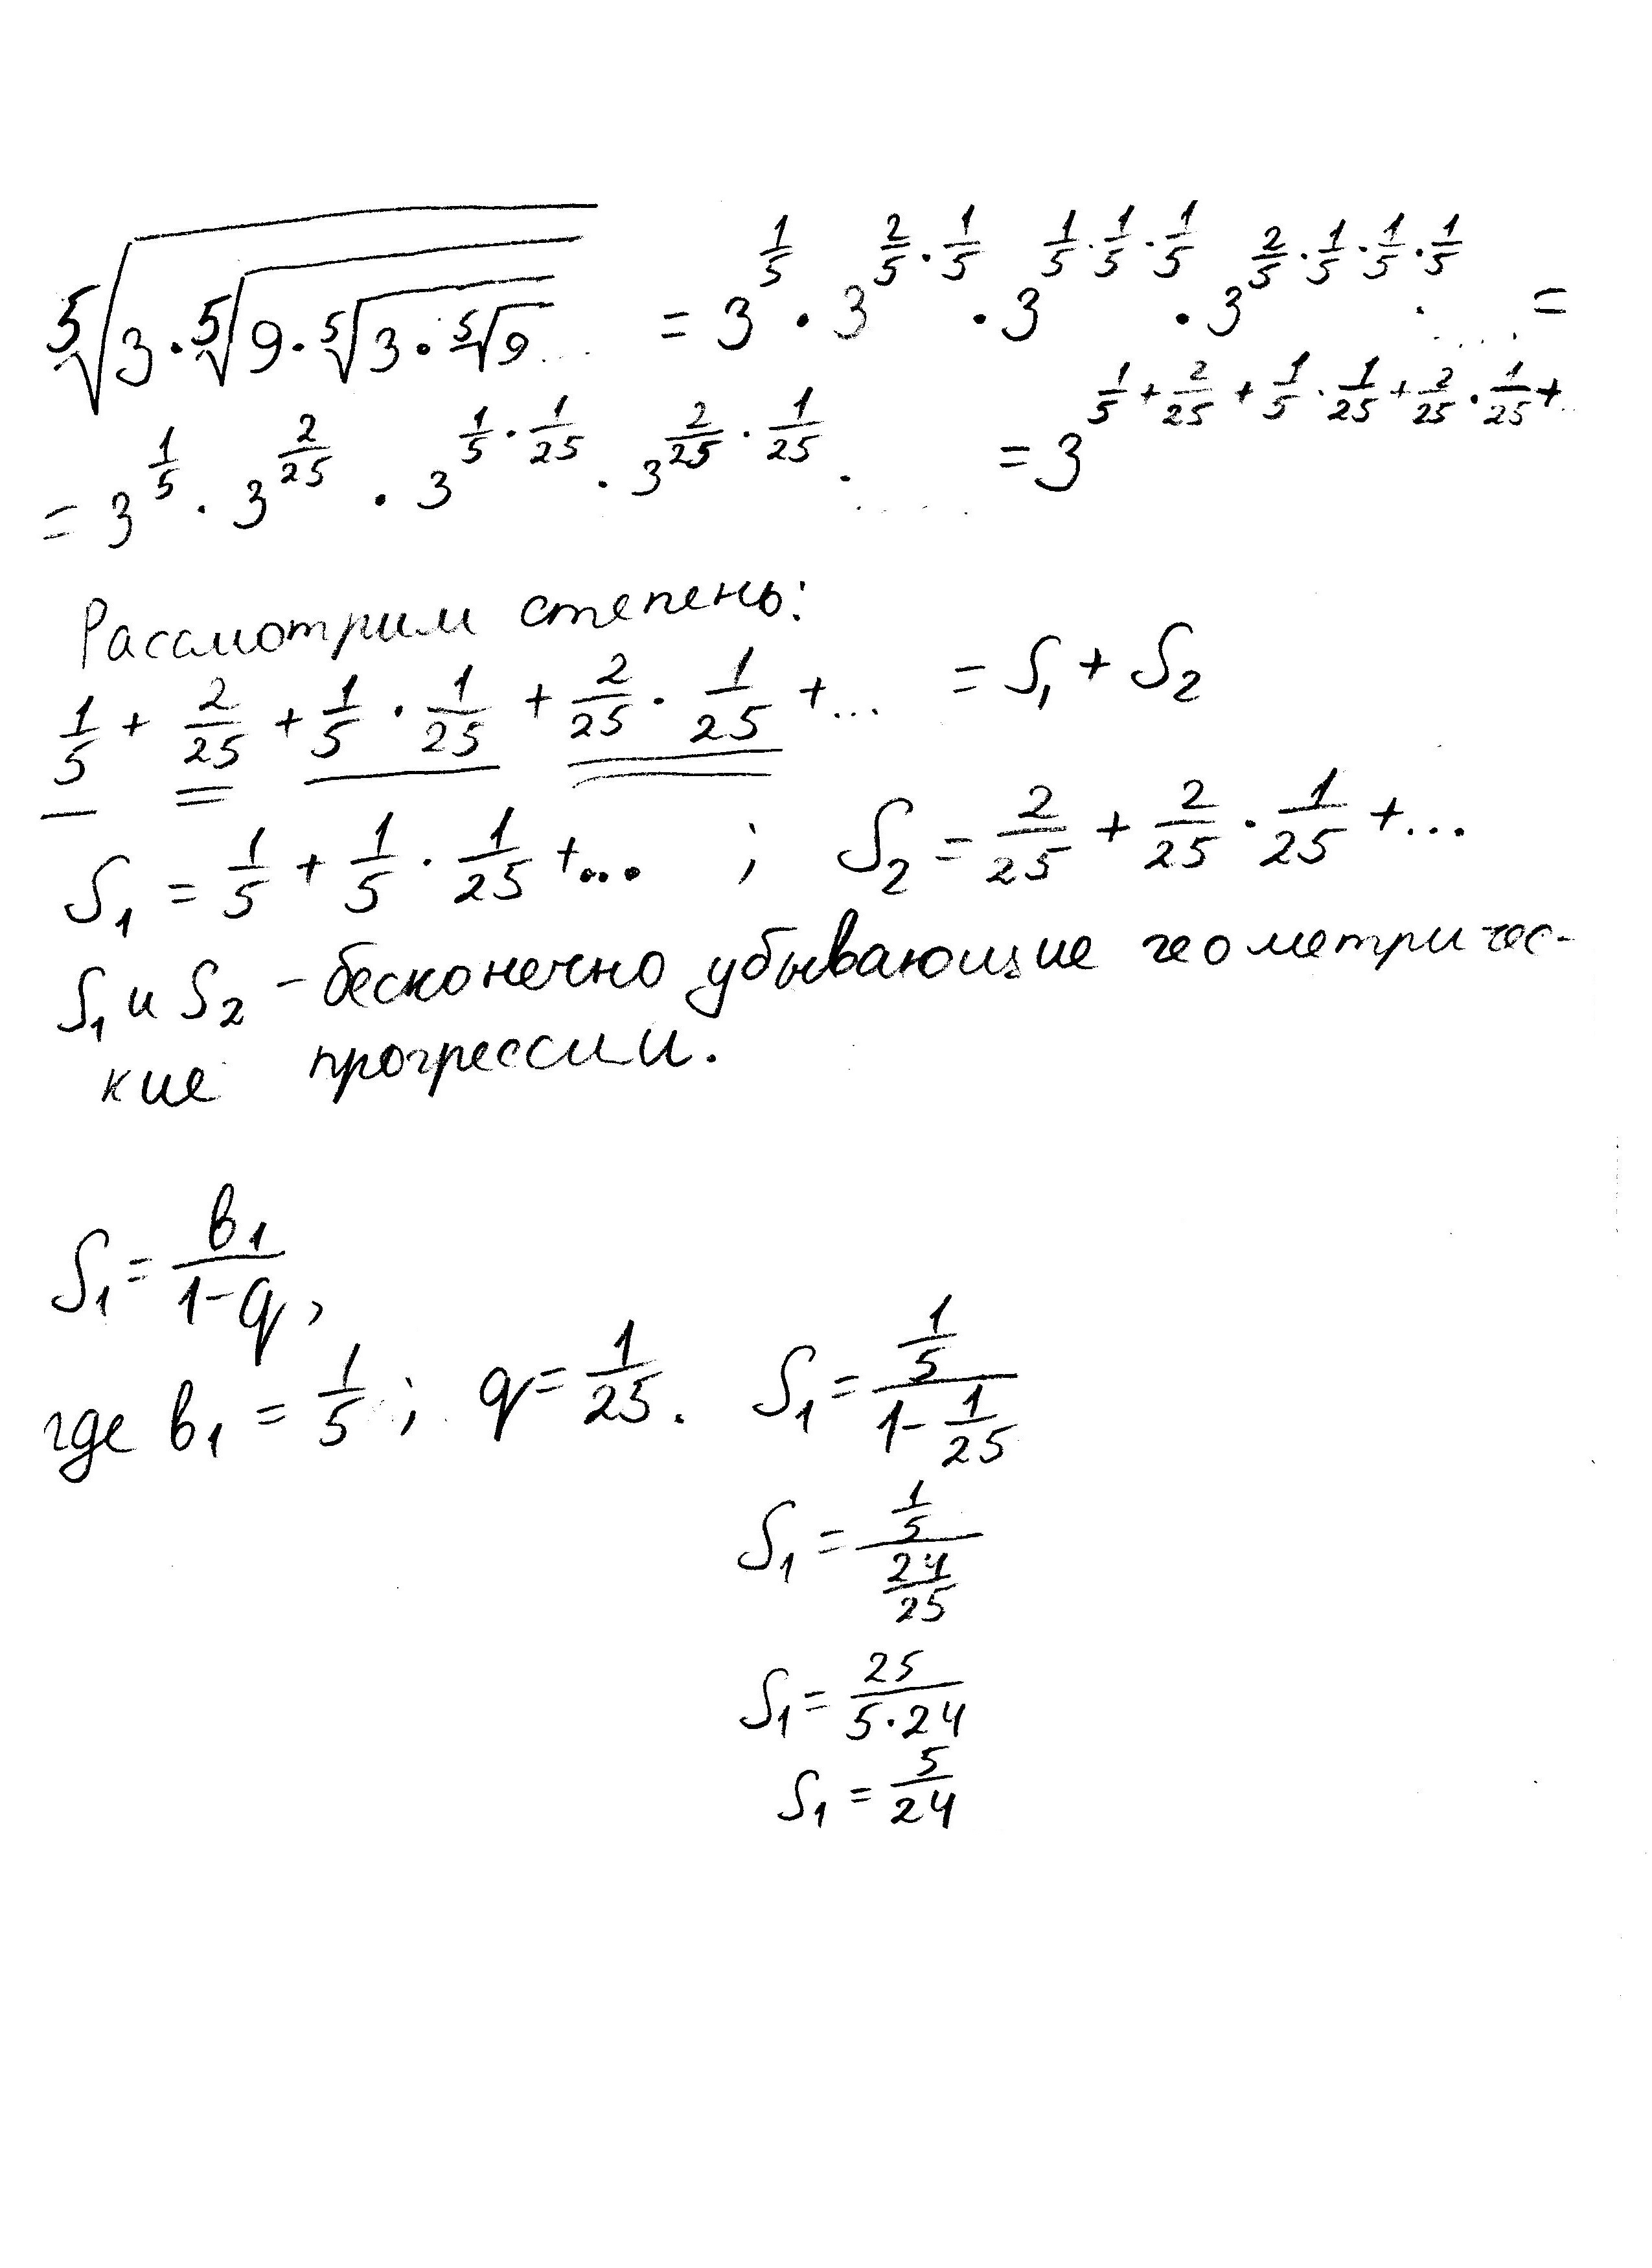 ⁵√(3·⁵√(9·⁵√(3·⁵√9... = 3^(1/5) · 3^(2/5 · 1/5) · 3^(1/5 · 1/5 · 1/5) · 3^(2/5 · 1/5 · 1/5 · 1/5) · .... =
= 3^(1/5) · 3^(2/25) · 3^(1/5 · 1/25) · 3^(2/25 · 1/25) · ..... = 3^(1/5 + 2/25 + 1/5 · 1/25 + 2/25 · 1/25 + ..)
Рассмотрим степень:
1/5 + 2/25 + 1/5 · 1/25 + 2/25 · 1/25 + ... = S₁ + S₂
S₁ = 1/5 + 1/5 · 1/25 + ... ; S₂ = 2/25 + 2/25 · 1/25 + ...
S₁ и S₂ - бесконечно убывающие геометричес-
кие прогрессии.
S₁ = b₁/(1-q),
где b₁ = 1/5; q = 1/25. S₁ = (1/5)/(1 - 1/25)
S₁ = (1/5)/(24/25)
S₁ = 25/(5·24)
S₁ = 5/24